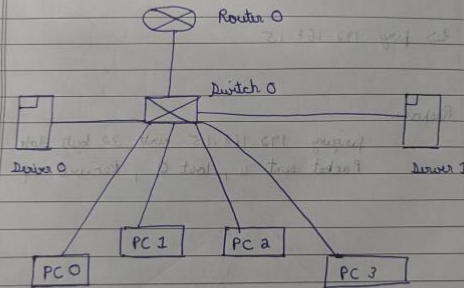 Router 0
Switch 0
Server 0
Server 1
PC 0
PC 1
PC 2
PC 3